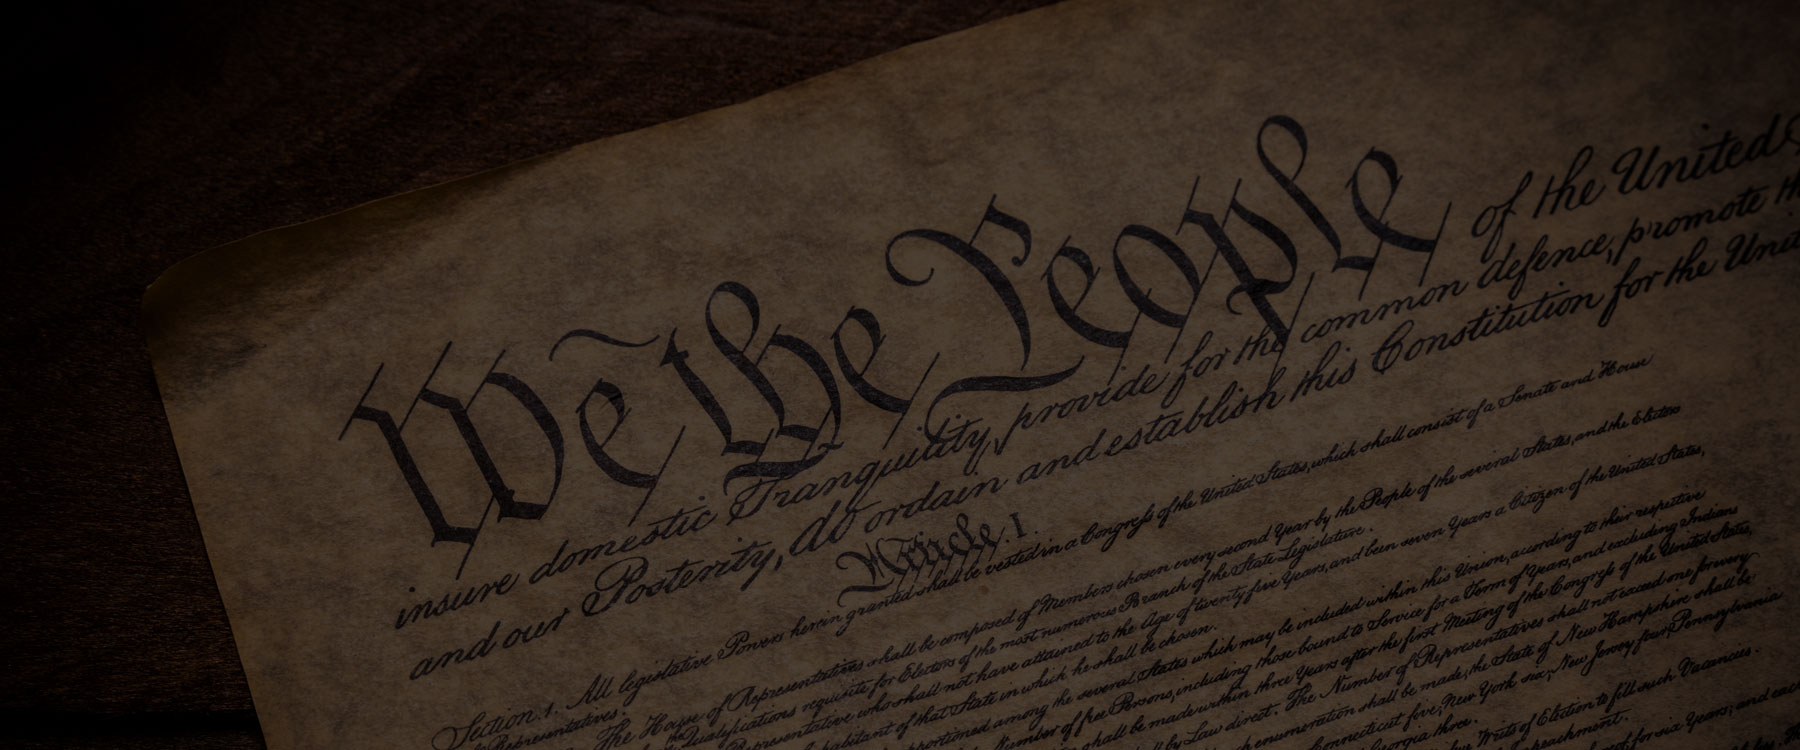 We the People of the United S
insure domestic Tranquility, provide for the common defence, promote th
and our Posterity, do ordain and establish this Constitution for the Unit
Article. I.
Section. 1. All legislative Powers herein granted shall be vested in a Congress of the United States, which shall consist of a Senate and House
of Representatives.
The House of Representatives shall be composed of Members chosen every second Year by the People of the several States, and the Electors
Qualifications requisite for Electors of the most numerous Branch of the State Legislature.
Representative who shall not have attained to the Age of twenty five Years, and been seven Years a Citizen of the United States,
inhabitant of that State in which he shall be chosen.
apportioned among the several States which may be included within this Union, according to their respective
Number of free Persons, including those bound to Service for a Term of Years, and excluding Indians
shall be made within three Years after the first Meeting of the Congress of the United States,
by Law direct. The Number of Representatives shall not exceed one for every
enumeration shall be made, the State of New Hampshire shall be
Connecticut five, New York six, New Jersey four, Pennsylvania
Georgia three.
Writs of Election to fill such Vacancies.
Impeachment.
for six Years; and each